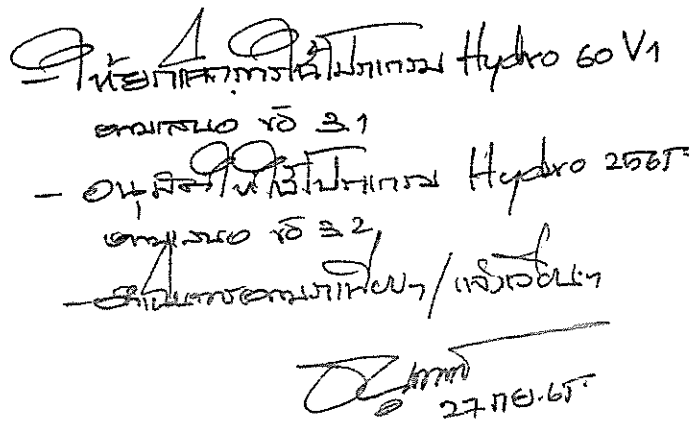 - ให้ยกเลิกการใช้โปรแกรม Hydro 60 V1
ตามเสนอ ข้อ 3.1
- อนุมัติให้ใช้โปรแกรม Hydro 2565
ตามเสนอ ข้อ 3.2
- ดำเนินการตามระเบียบฯ / แจ้งเวียนฯ
27 กย. 65